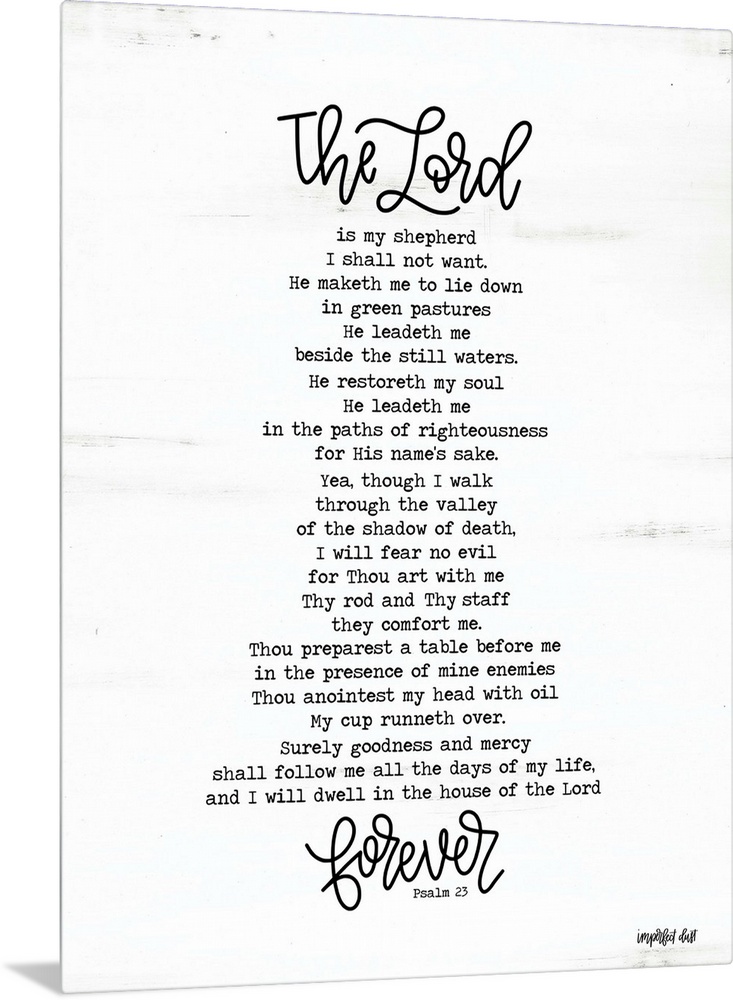 The Lord
is my shepherd
I shall not want.
He maketh me to lie down
in green pastures
He leadeth me
beside the still waters.
He restoreth my soul
He leadeth me
in the paths of righteousness
for His name's sake.
Yea, though I walk
through the valley
of the shadow of death,
I will fear no evil
for Thou art with me
Thy rod and Thy staff
they comfort me.
Thou preparest a table before me
in the presence of mine enemies
Thou anointest my head with oil
My cup runneth over.
Surely goodness and mercy
shall follow me all the days of my life,
and I will dwell in the house of the Lord
forever
Psalm 23
imperfect dust